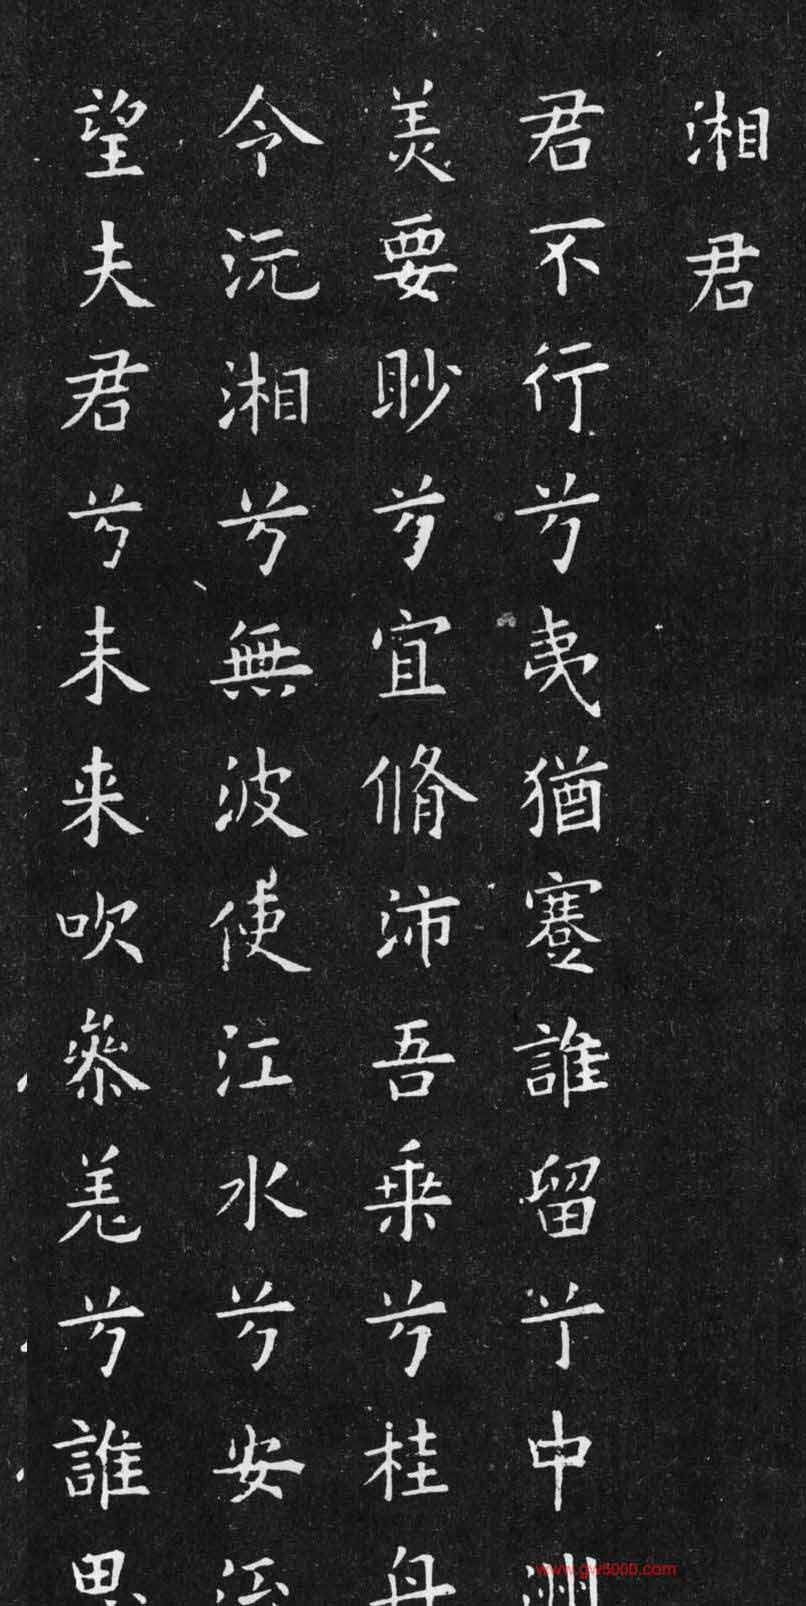 湘君
君不行兮夷猶蹇誰留兮中洲
美要眇兮宜脩沛吾乘兮桂舟
令沅湘兮無波使江水兮安流
望夫君兮未来吹參差兮誰思
www.gw5000.com